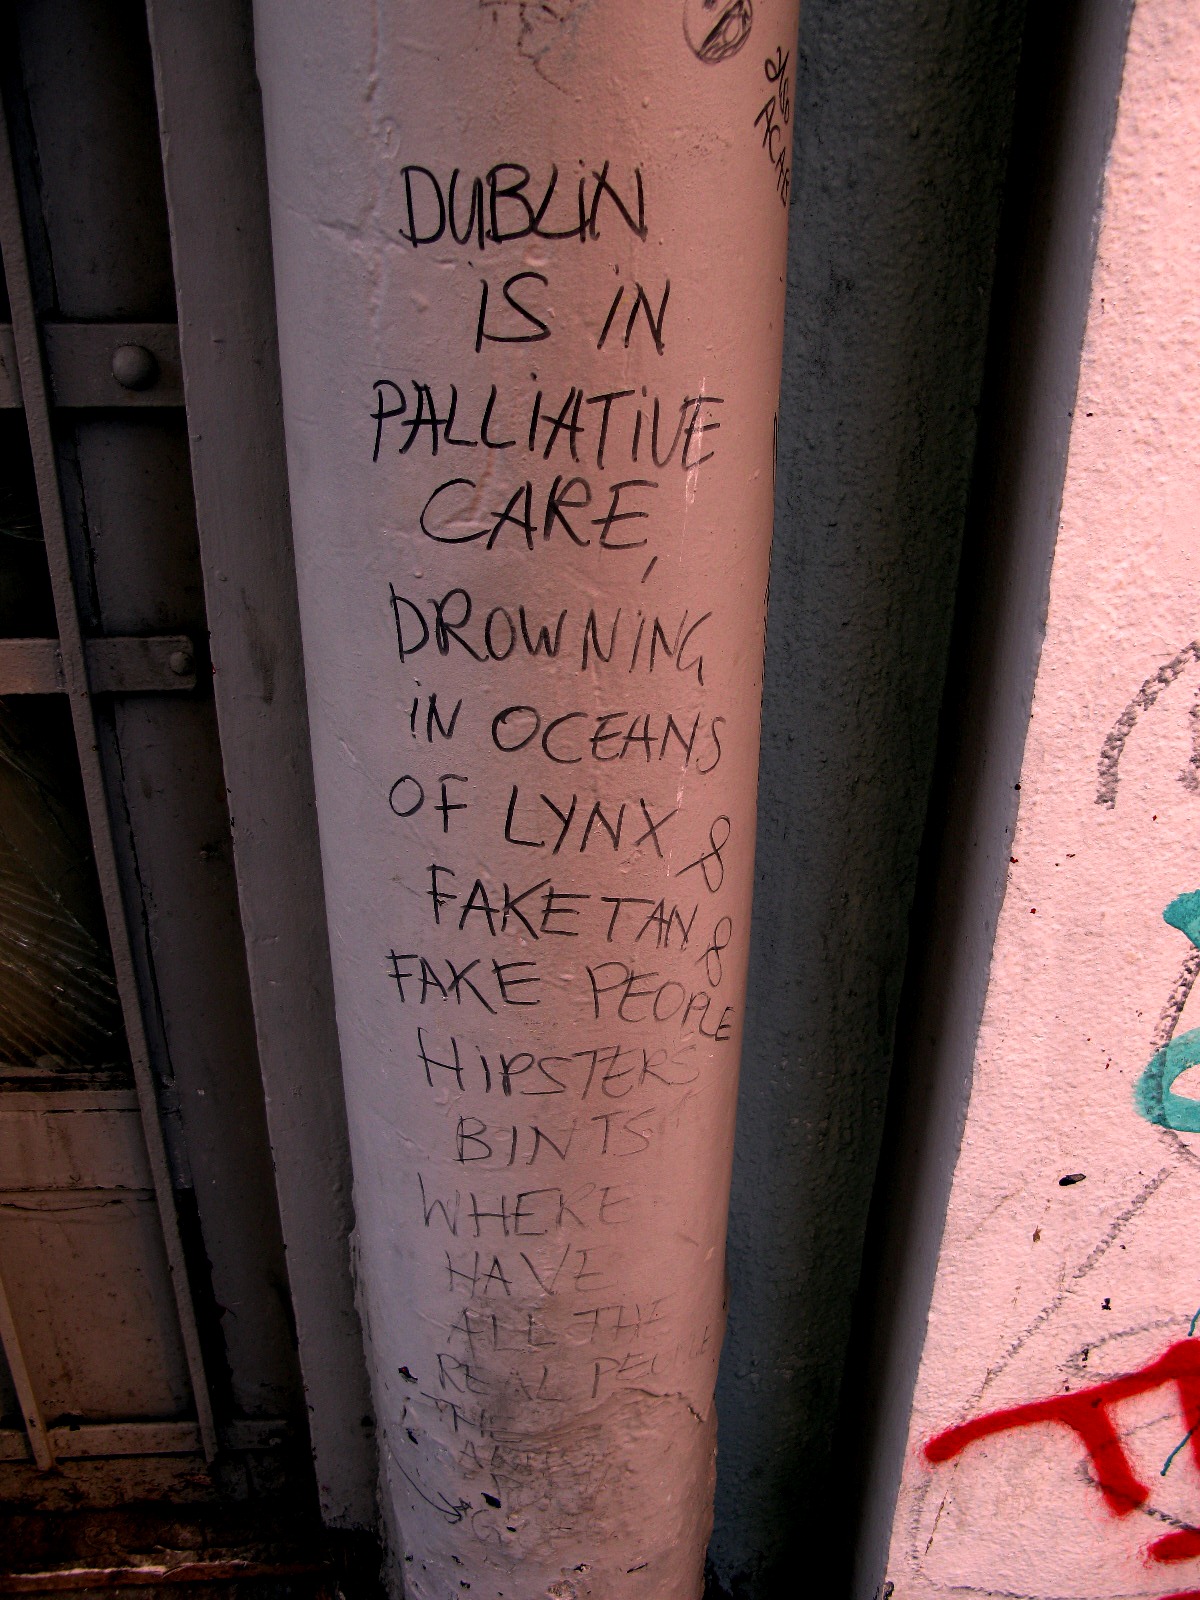 ACAB
DUBLIN
IS IN
PALLIATIVE
CARE,
DROWNING
IN OCEANS
OF LYNX &
FAKE TAN &
FAKE PEOPLE
HIPSTERS
BINTS
WHERE
HAVE
ALL THE
REAL PEOPLE
THE